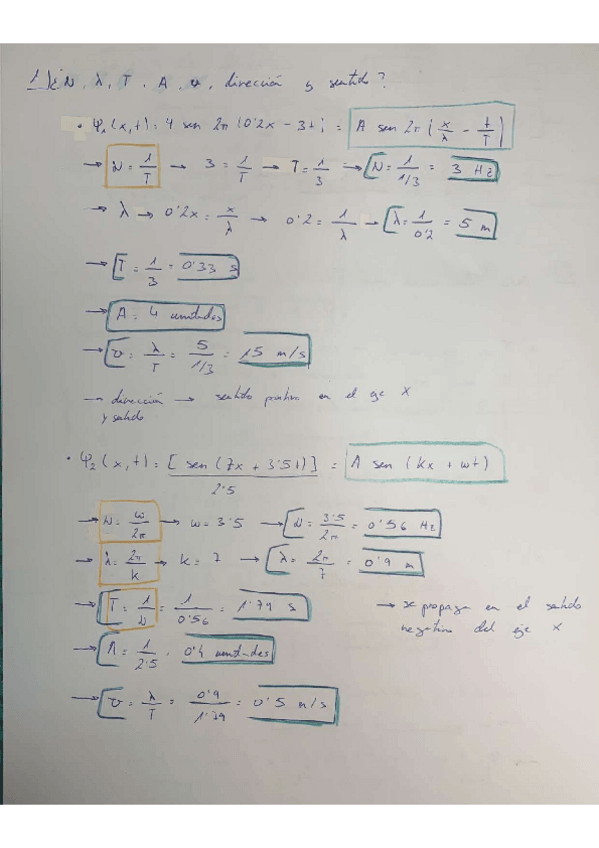 1) ¿ν, λ, T, A, v, dirección y sentido?
• Ψ₁(x,t) = 4 sen 2π (0'2x - 3t) = A sen 2π (x/λ - t/T)
→ ν = 1/T → 3 = 1/T → T = 1/3 → ν = 1/1/3 = 3 Hz
→ λ → 0'2x = x/λ → 0'2 = 1/λ → λ = 1/0'2 = 5 m
→ T = 1/3 = 0'33 s
→ A = 4 unidades
→ v = λ/T = 5/1/3 = 15 m/s
→ dirección y sentido → sentido positivo en el eje X
• Ψ₂(x,t) = [sen (7x + 3'5t)]/2'5 = A sen (kx + wt)
→ ν = w/2π → w = 3'5 → ν = 3'5/2π = 0'56 Hz
→ λ = 2π/k → k = 7 → λ = 2π/7 = 0'9 m
→ T = 1/ν = 1/0'56 = 1'79 s
→ se propaga en el sentido
negativo del eje X
→ A = 1/2'5 = 0'4 unidades
→ v = λ/T = 0'9/1'79 = 0'5 m/s